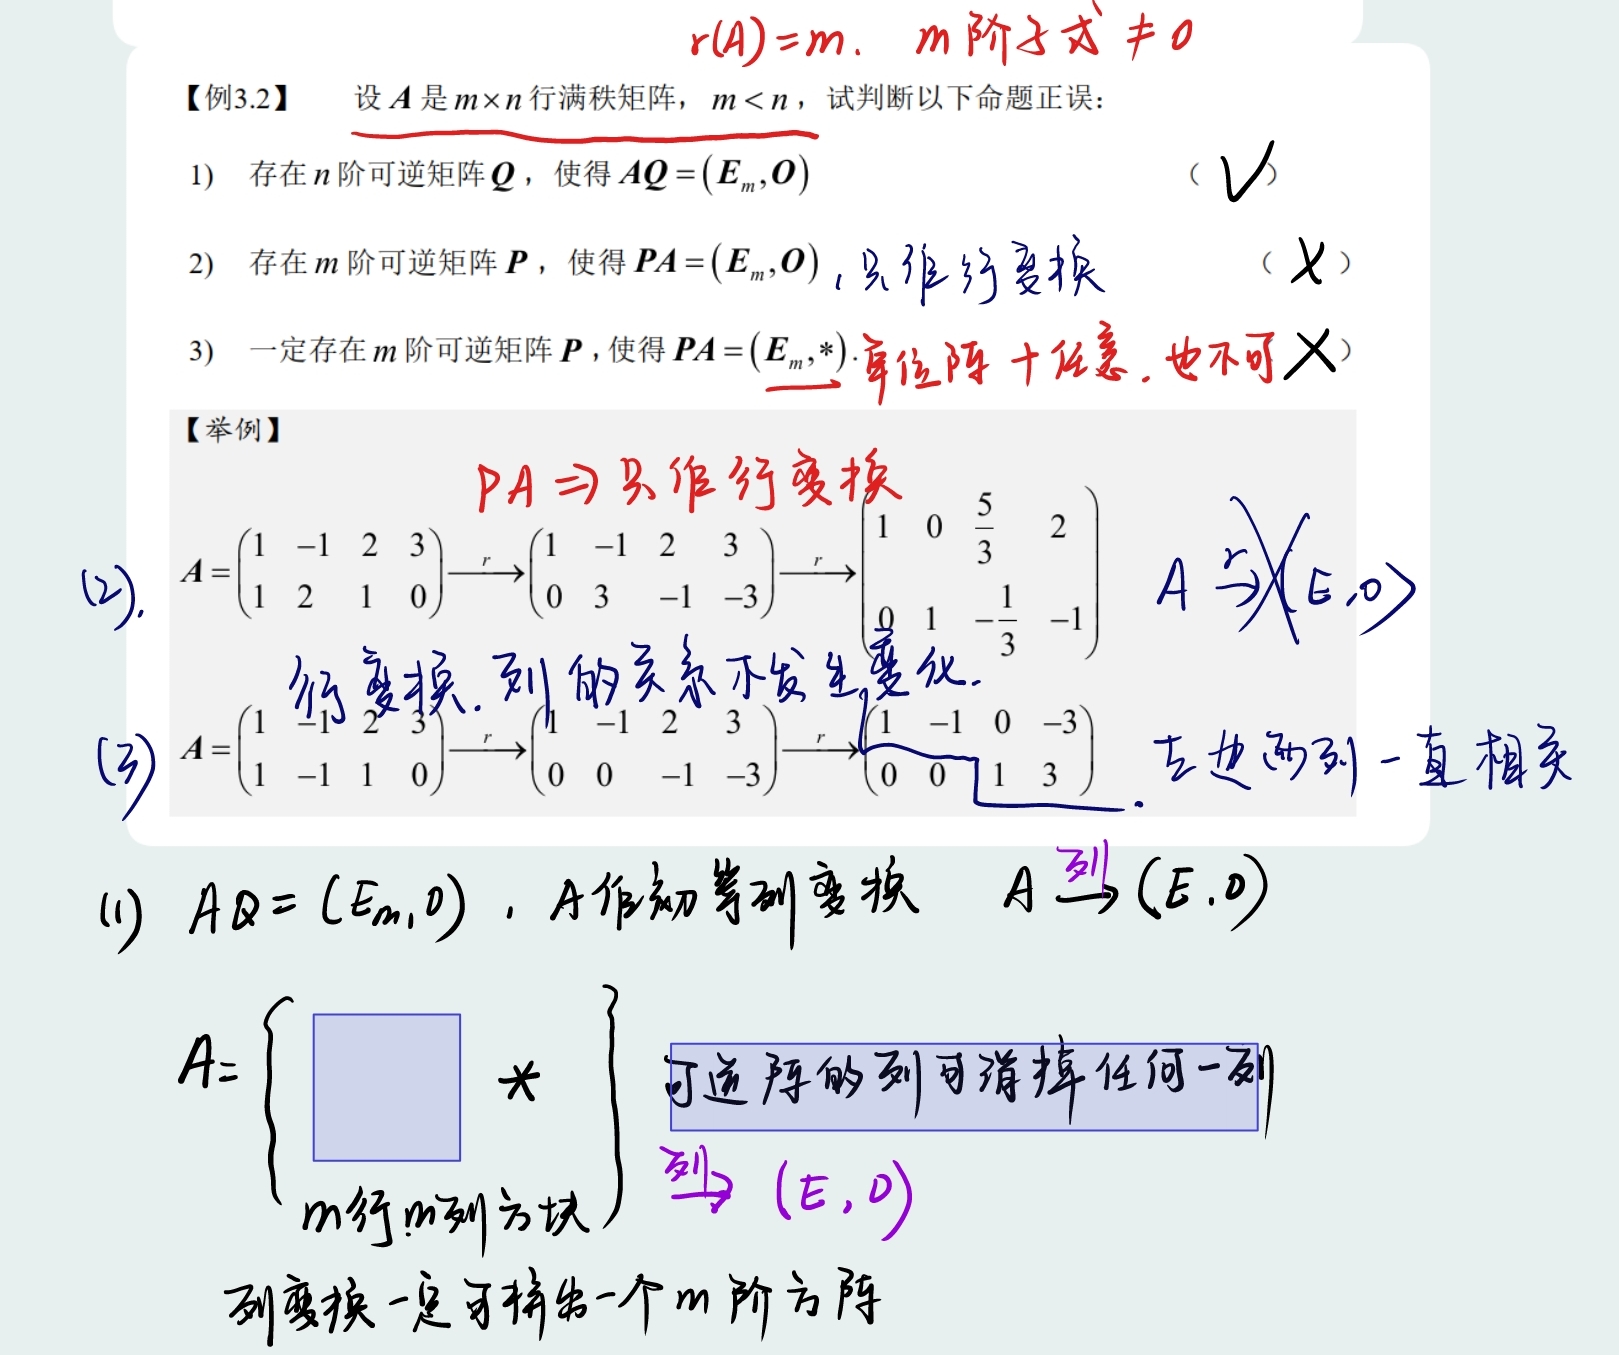 r(A)=m. m阶子式≠0
【例3.2】 设 A 是 m×n 行满秩矩阵，m<n，试判断以下命题正误：
1) 存在 n 阶可逆矩阵 Q，使得 AQ=(E_m,O) （√）
2) 存在 m 阶可逆矩阵 P，使得 PA=(E_m,O)，只作行变换 （×）
3) 一定存在 m 阶可逆矩阵 P，使得 PA=(E_m,*). 单位阵+任意.也不可 ×）
【举例】
PA⇒只作行变换
(2). A=(1 -1 2 3; 1 2 1 0) --r--> (1 -1 2 3; 0 3 -1 -3) --r--> (1 0 5/3 2; 0 1 -1/3 -1) A r→ (E,0)
行变换.列的关系不发生变化.
(3) A=(1 -1 2 3; 1 -1 1 0) --r--> (1 -1 2 3; 0 0 -1 -3) --r--> (1 -1 0 -3; 0 0 1 3) 左边两列一直相关
(1) AQ=(Em,0)，A作初等列变换 A 列→ (E.0)
A= { * } 可逆阵的列可消掉任何一列
列→ (E,0)
m行m列方块
列变换一定可拼出一个m阶方阵